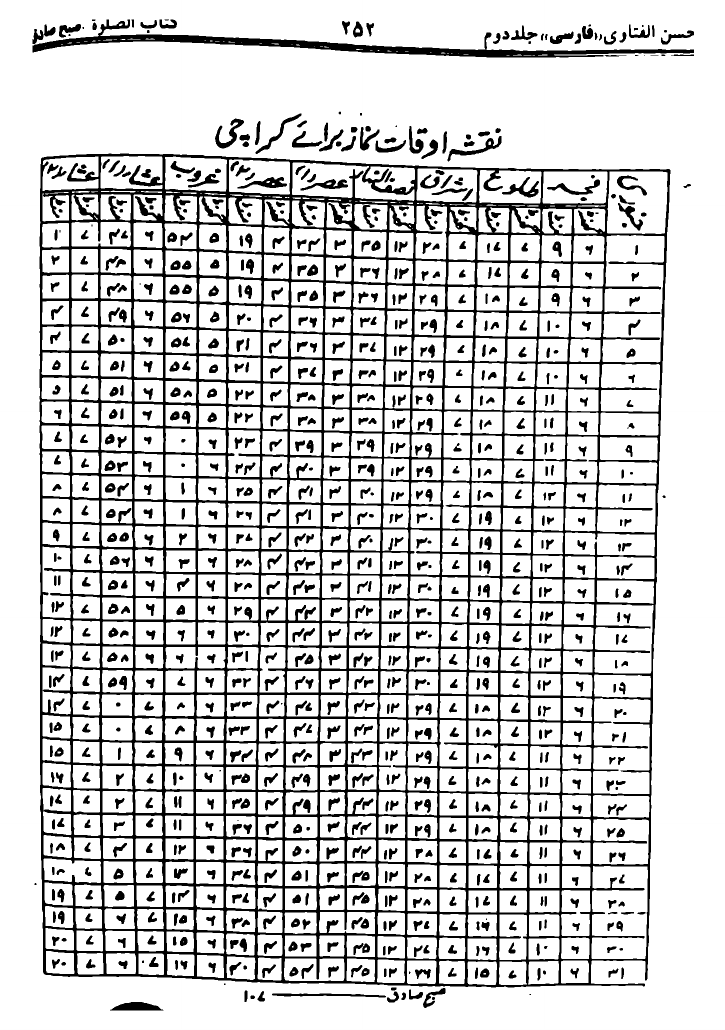 حسن الفتاوی «فارسی» جلد دوم ۲۵۲ کتاب الصلوة، صبح صادق
نقشہ اوقات نماز برائے کراچی
جنوری فجر طلوع اشراق نصف النہار عصر(۱) عصر(۲) غروب عشاء(۱) عشاء(۲)
۱ ۶ ۹ ۷ ۱۷ ۷ ۲۸ ۱۲ ۳۵ ۳ ۳۴ ۴ ۱۹ ۵ ۵۴ ۶ ۴۷ ۷ ۱
۲ ۶ ۹ ۷ ۱۷ ۷ ۲۸ ۱۲ ۳۶ ۳ ۳۵ ۴ ۱۹ ۵ ۵۵ ۶ ۴۸ ۷ ۲
۳ ۶ ۹ ۷ ۱۸ ۷ ۲۹ ۱۲ ۳۶ ۳ ۳۵ ۴ ۱۹ ۵ ۵۵ ۶ ۴۸ ۷ ۳
۴ ۶ ۱۰ ۷ ۱۸ ۷ ۲۹ ۱۲ ۳۷ ۳ ۳۶ ۴ ۲۰ ۵ ۵۶ ۶ ۴۹ ۷ ۴
۵ ۶ ۱۰ ۷ ۱۸ ۷ ۲۹ ۱۲ ۳۷ ۳ ۳۶ ۴ ۲۱ ۵ ۵۷ ۶ ۵۰ ۷ ۴
۶ ۶ ۱۰ ۷ ۱۸ ۷ ۲۹ ۱۲ ۳۸ ۳ ۳۷ ۴ ۲۱ ۵ ۵۷ ۶ ۵۱ ۷ ۵
۷ ۶ ۱۱ ۷ ۱۸ ۷ ۲۹ ۱۲ ۳۸ ۳ ۳۸ ۴ ۲۲ ۵ ۵۸ ۶ ۵۱ ۷ ۵
۸ ۶ ۱۱ ۷ ۱۸ ۷ ۲۹ ۱۲ ۳۸ ۳ ۳۸ ۴ ۲۲ ۵ ۵۹ ۶ ۵۱ ۷ ۶
۹ ۶ ۱۱ ۷ ۱۸ ۷ ۲۹ ۱۲ ۳۹ ۳ ۳۹ ۴ ۲۳ ۶ ۰ ۶ ۵۲ ۷ ۷
۱۰ ۶ ۱۱ ۷ ۱۸ ۷ ۲۹ ۱۲ ۳۹ ۳ ۴۰ ۴ ۲۴ ۶ ۰ ۶ ۵۳ ۷ ۷
۱۱ ۶ ۱۲ ۷ ۱۸ ۷ ۲۹ ۱۲ ۴۰ ۳ ۴۱ ۴ ۲۵ ۶ ۱ ۶ ۵۴ ۷ ۸
۱۲ ۶ ۱۲ ۷ ۱۹ ۷ ۳۰ ۱۲ ۴۰ ۳ ۴۱ ۴ ۲۶ ۶ ۱ ۶ ۵۴ ۷ ۸
۱۳ ۶ ۱۲ ۷ ۱۹ ۷ ۳۰ ۱۲ ۴۰ ۳ ۴۲ ۴ ۲۷ ۶ ۲ ۶ ۵۵ ۷ ۹
۱۴ ۶ ۱۲ ۷ ۱۹ ۷ ۳۰ ۱۲ ۴۱ ۳ ۴۳ ۴ ۲۸ ۶ ۳ ۶ ۵۶ ۷ ۱۰
۱۵ ۶ ۱۲ ۷ ۱۹ ۷ ۳۰ ۱۲ ۴۱ ۳ ۴۳ ۴ ۲۸ ۶ ۴ ۶ ۵۷ ۷ ۱۱
۱۶ ۶ ۱۲ ۷ ۱۹ ۷ ۳۰ ۱۲ ۴۲ ۳ ۴۴ ۴ ۲۹ ۶ ۵ ۶ ۵۸ ۷ ۱۲
۱۷ ۶ ۱۲ ۷ ۱۹ ۷ ۳۰ ۱۲ ۴۲ ۳ ۴۴ ۴ ۳۰ ۶ ۶ ۶ ۵۸ ۷ ۱۲
۱۸ ۶ ۱۲ ۷ ۱۹ ۷ ۳۰ ۱۲ ۴۲ ۳ ۴۵ ۴ ۳۱ ۶ ۶ ۶ ۵۸ ۷ ۱۳
۱۹ ۶ ۱۲ ۷ ۱۹ ۷ ۳۰ ۱۲ ۴۳ ۳ ۴۶ ۴ ۳۲ ۶ ۷ ۶ ۵۹ ۷ ۱۴
۲۰ ۶ ۱۲ ۷ ۱۸ ۷ ۲۹ ۱۲ ۴۳ ۳ ۴۷ ۴ ۳۳ ۶ ۸ ۷ ۰ ۷ ۱۴
۲۱ ۶ ۱۲ ۷ ۱۸ ۷ ۲۹ ۱۲ ۴۳ ۳ ۴۷ ۴ ۳۳ ۶ ۸ ۷ ۰ ۷ ۱۵
۲۲ ۶ ۱۱ ۷ ۱۸ ۷ ۲۹ ۱۲ ۴۳ ۳ ۴۸ ۴ ۳۴ ۶ ۹ ۷ ۱ ۷ ۱۵
۲۳ ۶ ۱۱ ۷ ۱۸ ۷ ۲۹ ۱۲ ۴۴ ۳ ۴۹ ۴ ۳۵ ۶ ۱۰ ۷ ۲ ۷ ۱۶
۲۴ ۶ ۱۱ ۷ ۱۸ ۷ ۲۹ ۱۲ ۴۴ ۳ ۴۹ ۴ ۳۵ ۶ ۱۱ ۷ ۲ ۷ ۱۷
۲۵ ۶ ۱۱ ۷ ۱۸ ۷ ۲۹ ۱۲ ۴۴ ۳ ۵۰ ۴ ۳۶ ۶ ۱۱ ۷ ۳ ۷ ۱۷
۲۶ ۶ ۱۱ ۷ ۱۷ ۷ ۲۸ ۱۲ ۴۴ ۳ ۵۰ ۴ ۳۶ ۶ ۱۲ ۷ ۴ ۷ ۱۸
۲۷ ۶ ۱۱ ۷ ۱۷ ۷ ۲۸ ۱۲ ۴۵ ۳ ۵۱ ۴ ۳۷ ۶ ۱۳ ۷ ۵ ۷ ۱۸
۲۸ ۶ ۱۱ ۷ ۱۷ ۷ ۲۸ ۱۲ ۴۵ ۳ ۵۱ ۴ ۳۷ ۶ ۱۴ ۷ ۵ ۷ ۱۹
۲۹ ۶ ۱۱ ۷ ۱۶ ۷ ۲۷ ۱۲ ۴۵ ۳ ۵۲ ۴ ۳۸ ۶ ۱۵ ۷ ۶ ۷ ۱۹
۳۰ ۶ ۱۰ ۷ ۱۶ ۷ ۲۷ ۱۲ ۴۵ ۳ ۵۳ ۴ ۳۹ ۶ ۱۵ ۷ ۶ ۷ ۲۰
۳۱ ۶ ۱۰ ۷ ۱۵ ۷ ۲۶ ۱۲ ۴۵ ۳ ۵۴ ۴ ۴۰ ۶ ۱۶ ۷ ۶ ۷ ۲۰
صبح صادق ۱۰۷